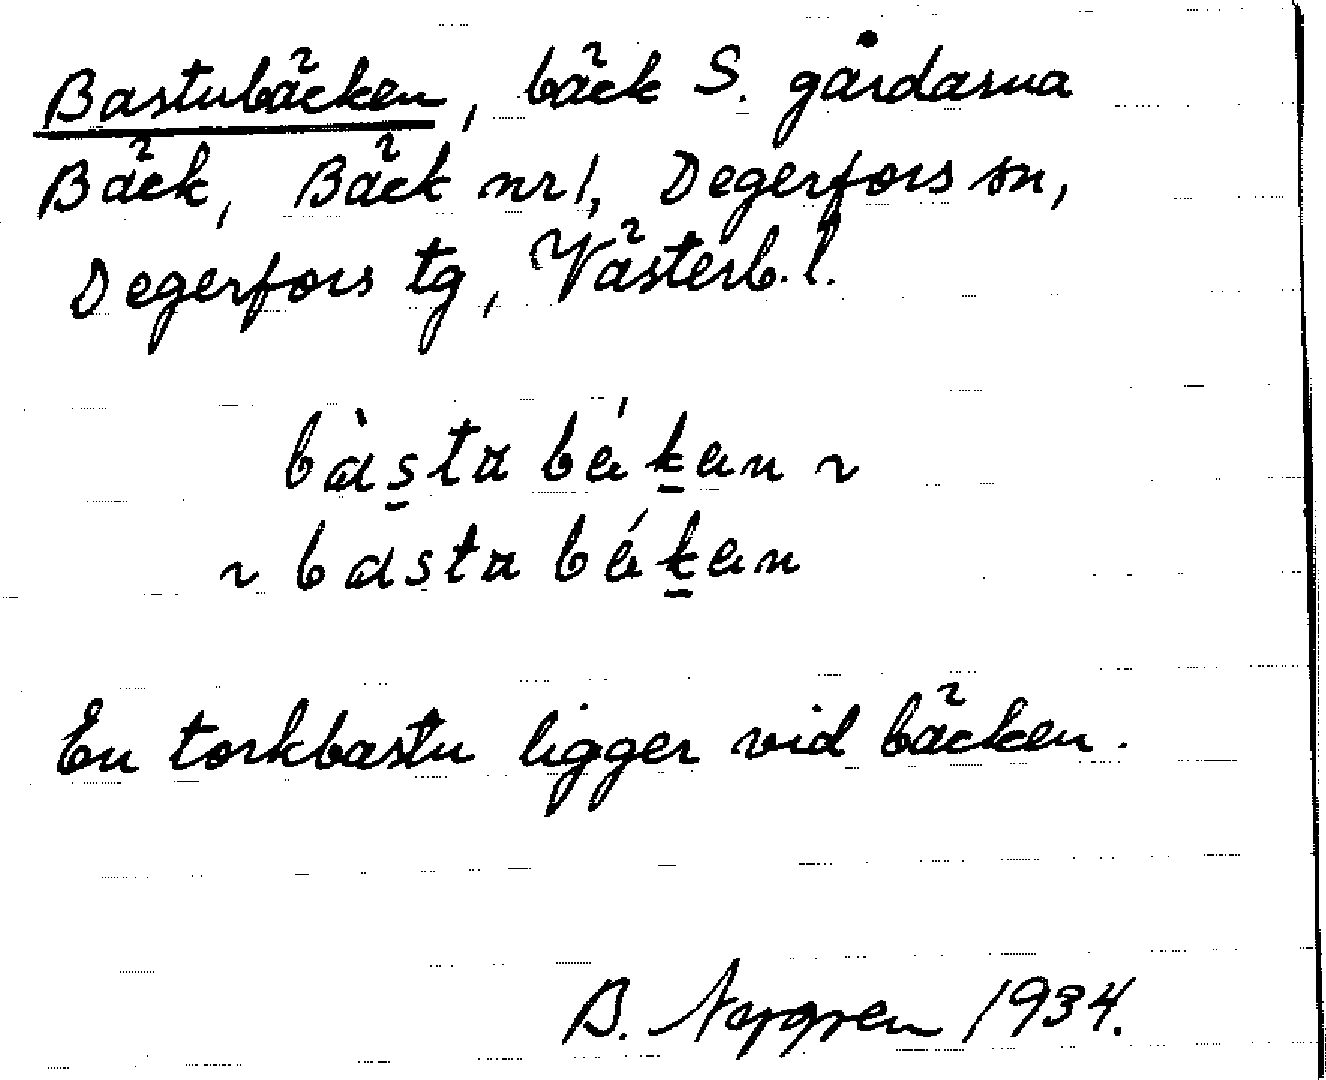 Bastubäcken, bäck S. gårdarna
Bäck, Bäck nr 1, Degerfors sn,
Degerfors tg, Västerb. l.
bàsta béken ~
~ basta béken
En torkbastu ligger vid bäcken.
B. Nygren 1934.